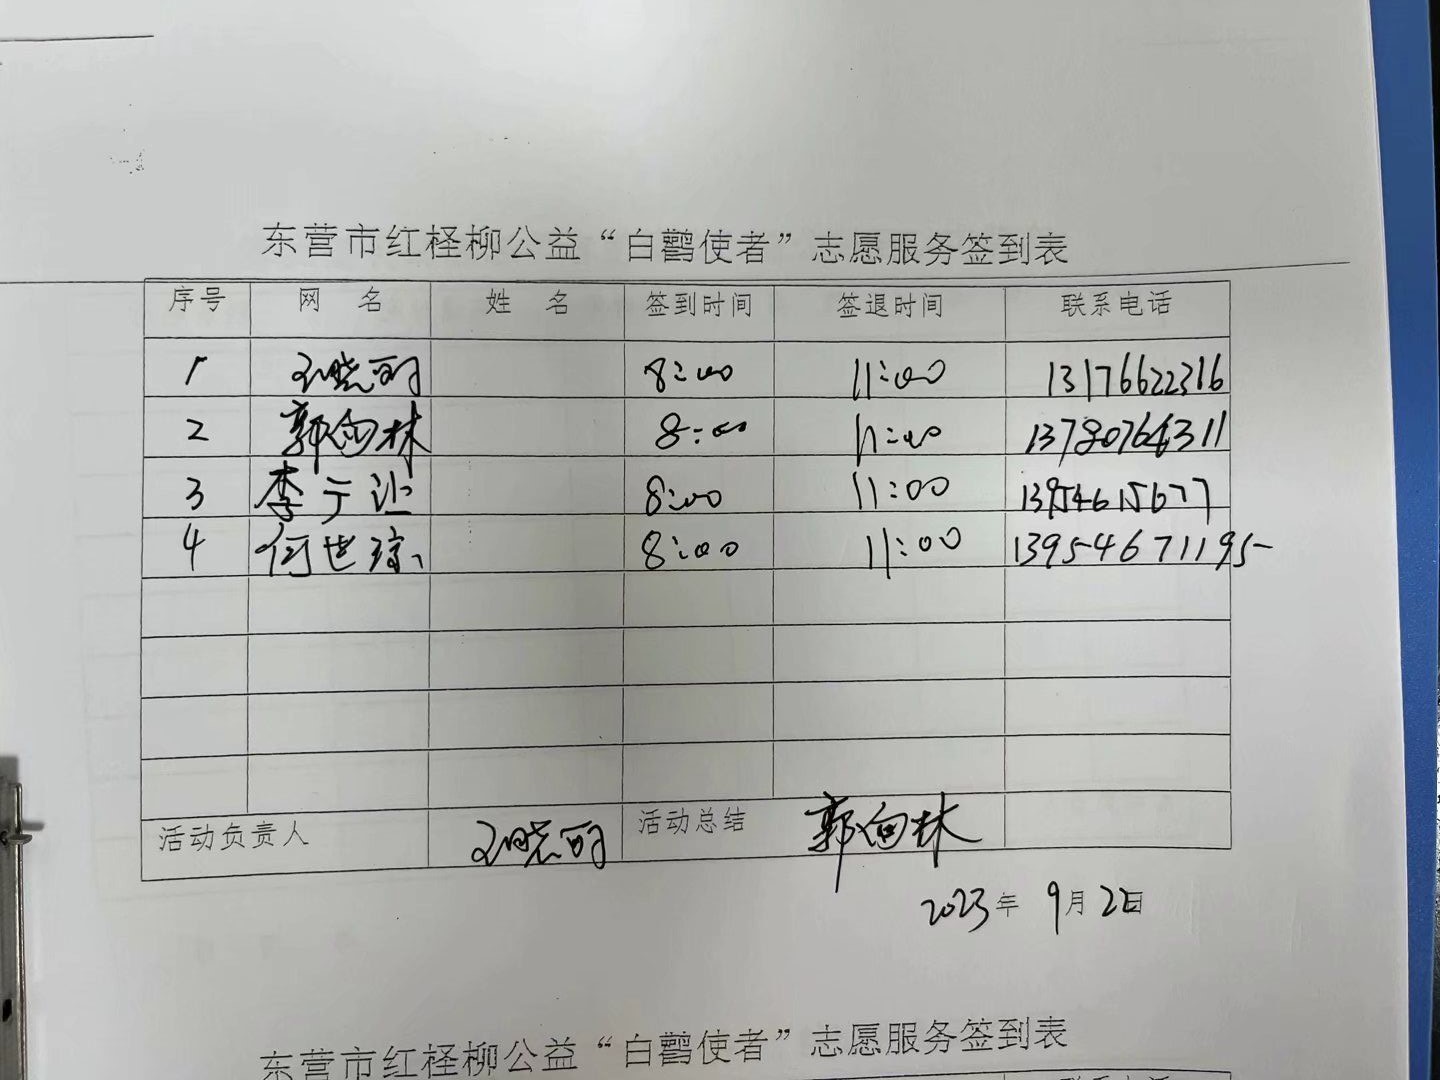 东营市红柽柳公益“白鹳使者”志愿服务签到表
序号 网 名 姓 名 签到时间 签退时间 联系电话
1 王晓丽 8:00 11:00 13176622316
2 郭向林 8:00 11:00
3 李 8:00 11:00 13954615677
4 何世 8:00 11:00 13954671195
活动负责人 王晓丽 活动总结 郭向林
2023年 9月2日
东营市红柽柳公益“白鹳使者”志愿服务签到表
联系电话